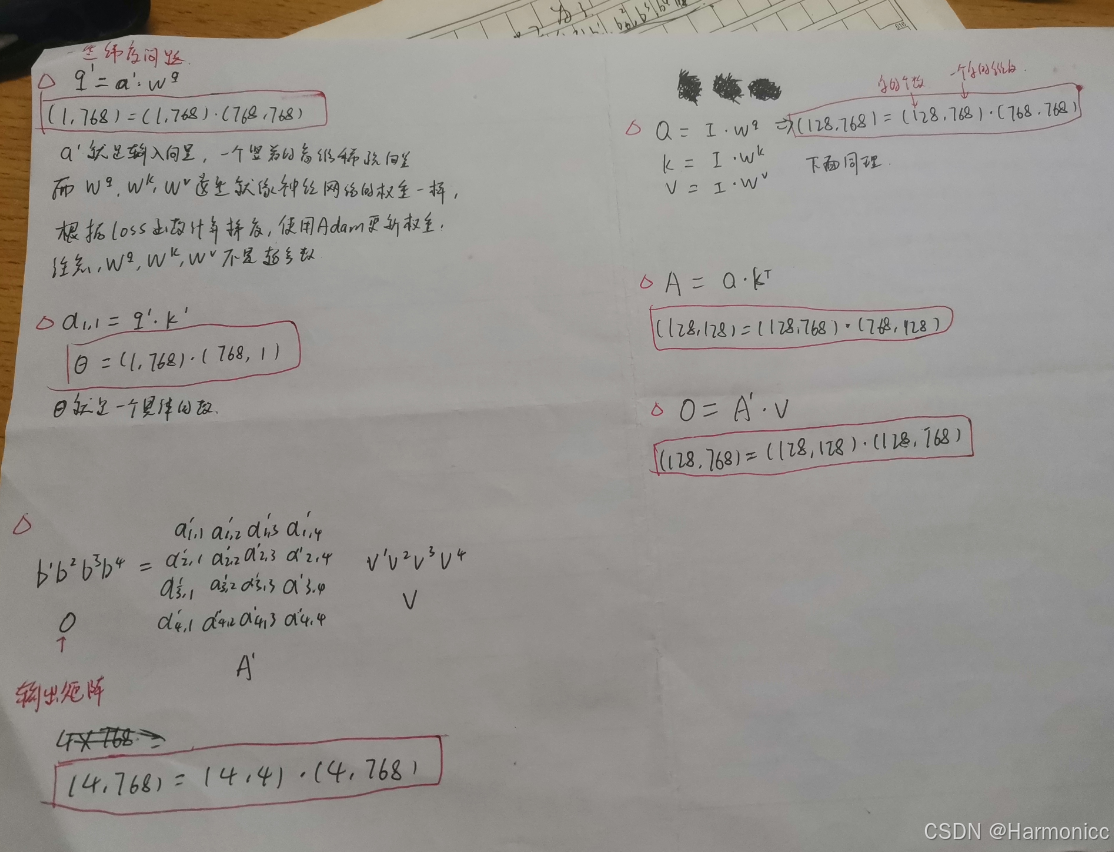 一些纬度问题
q¹ = a¹·W^q
(1,768) = (1,768)·(768,768)
a¹就是输入向量，一个竖着的高维稀疏向量
而 W^q, W^k, W^v 这些就像神经网络的权重一样,
根据Loss函数计算梯度,使用Adam更新权重.
注意, W^q, W^k, W^v 不是超参数
α1,1 = q¹·k¹
θ = (1,768)·(768,1)
θ就是一个具体的数.
b¹b²b³b⁴ =
α'1,1 α'1,2 α'1,3 α'1,4
α'2,1 α'2,2 α'2,3 α'2,4
α'3,1 α'3,2 α'3,3 α'3,4
α'4,1 α'4,2 α'4,3 α'4,4
v¹v²v³v⁴
O
A'
V
输出矩阵
4×768 =
(4,768) = (4,4)·(4,768)
字的个数
一个字的维度
Q = I·W^q ⇒ (128,768) = (128,768)·(768,768)
K = I·W^k
下面同理.
V = I·W^v
A = Q·K^T
(128,128) = (128,768)·(768,128)
O = A'·V
(128,768) = (128,128)·(128,768)
CSDN @Harmonicc